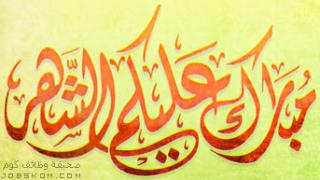 مُبَارَك عَلَيكُم الشَّهر
صحيفة وظائف كوم
JOBSKOM.COM